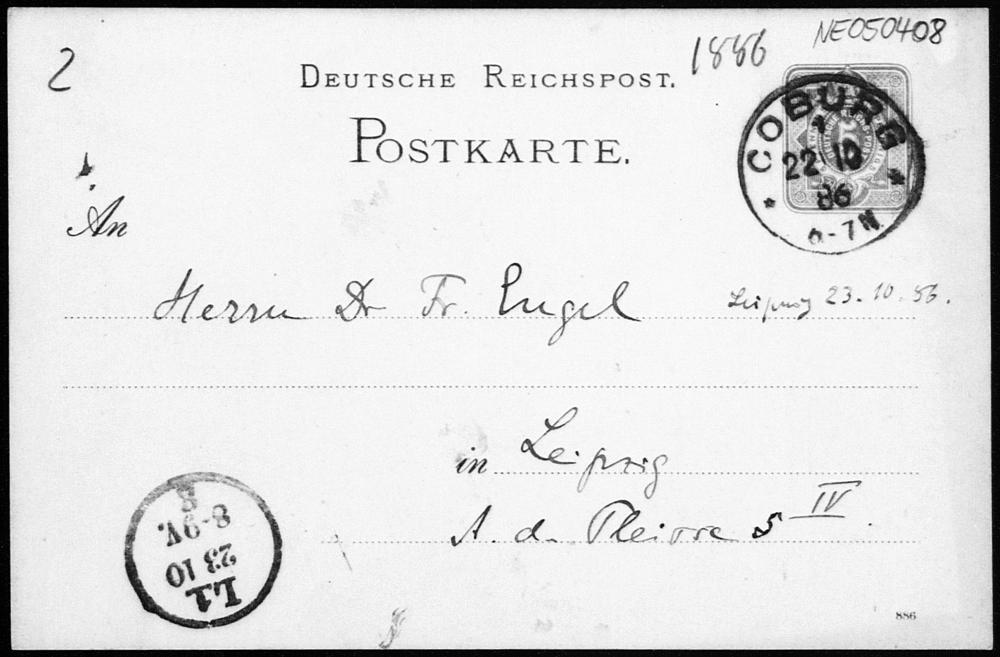 2
1886
NE050408
DEUTSCHE REICHSPOST.
POSTKARTE.
COBURG
22 10
86
6-7N.
An
Herrn Dr Fr. Engel
Leipzig 23.10.86.
in Leipzig
A. d. Pleisse 5 IV.
L1
23 10
8-9V.
g
886